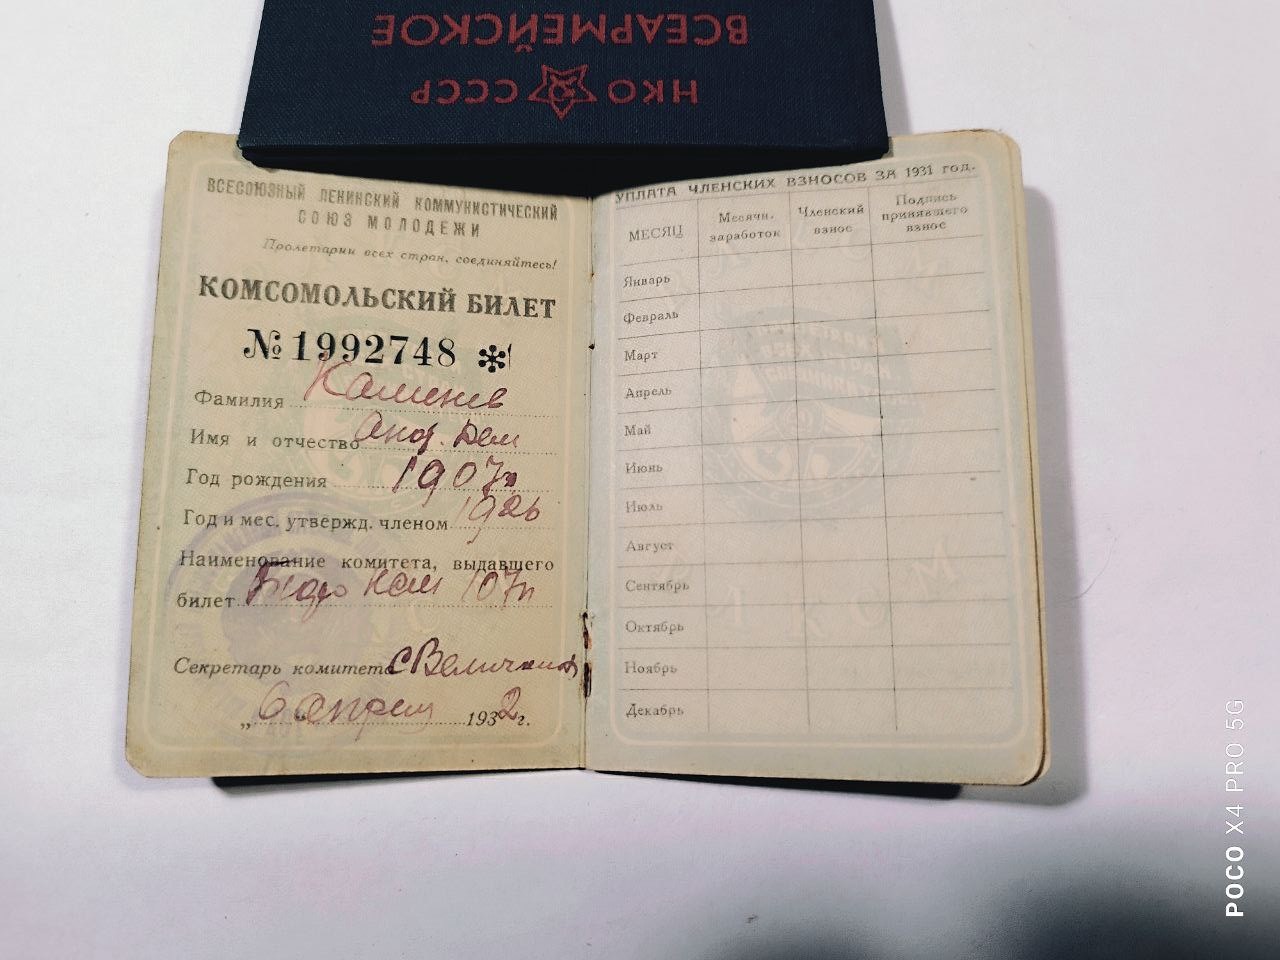 ВСЕАРМЕЙСКОЕ
НКО СССР
ВСЕСОЮЗНЫЙ ЛЕНИНСКИЙ КОММУНИСТИЧЕСКИЙ
СОЮЗ МОЛОДЕЖИ
Пролетарии всех стран, соединяйтесь!
КОМСОМОЛЬСКИЙ БИЛЕТ
№ 1992748 *
Фамилия Каменев
Имя и отчество Анд. Дем
Год рождения 1907г
Год и мес. утвержд. членом 1926
Наименование комитета, выдавшего
билет Бюро 107п
Секретарь комитета
„6" апреля 1932 г.
УПЛАТА ЧЛЕНСКИХ ВЗНОСОВ ЗА 1931 год.
МЕСЯЦ Месячн. заработок Членский взнос Подпись принявшего взнос
Январь
Февраль
Март
Апрель
Май
Июнь
Июль
Август
Сентябрь
Октябрь
Ноябрь
Декабрь
POCO X4 PRO 5G